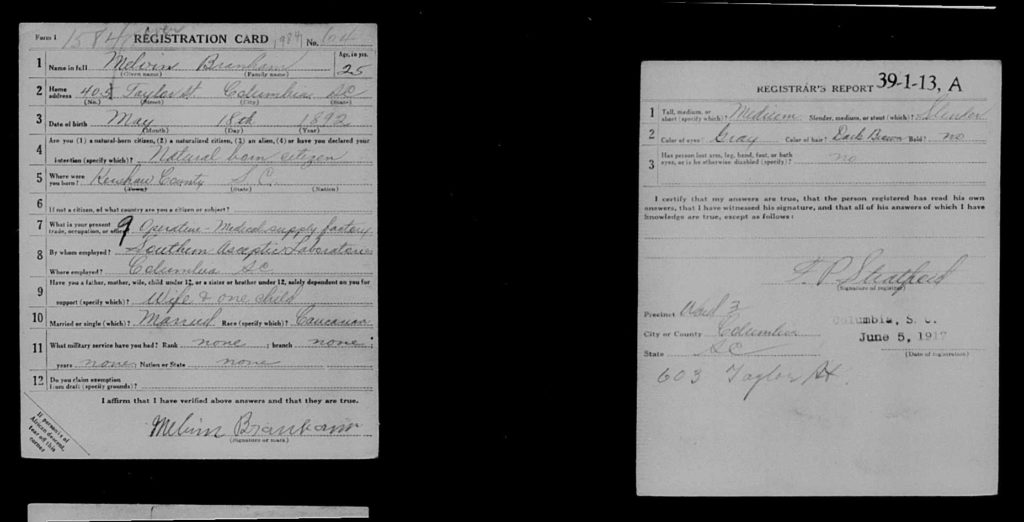 Form 1 1584 REGISTRATION CARD 1984 No. 64
1 Name in full Melvin Branham Age, in yrs. 25
(Given name) (Family name)
2 Home address 405 Taylor St Columbia SC
(No.) (Street) (City) (State)
3 Date of birth May 18th 1892
(Month) (Day) (Year)
4 Are you (1) a natural-born citizen, (2) a naturalized citizen, (3) an alien, (4) or have you declared your
intention (specify which)? Natural born citizen
5 Where were you born? Kershaw County S.C.
(Town) (State) (Nation)
6 If not a citizen, of what country are you a citizen or subject?
7 What is your present trade, occupation, or office? 9 Operative - Medical supply factory
8 By whom employed? Southern Aseptic Laboratories
Where employed? Columbia SC
9 Have you a father, mother, wife, child under 12, or a sister or brother under 12, solely dependent on you for
support (specify which)? Wife & one child
10 Married or single (which)? Married Race (specify which)? Caucasian
11 What military service have you had? Rank none; branch none;
years none; Nation or State none
12 Do you claim exemption from draft (specify grounds)?
I affirm that I have verified above answers and that they are true.
Melvin Branham
(Signature or mark)
If person is of
African descent,
tear off this
corner
REGISTRAR'S REPORT 39-1-13, A
1 Tall, medium, or short (specify which)? Medium Slender, medium, or stout (which)? Slender
2 Color of eyes? Gray Color of hair? Dark Brown Bald? no
3 Has person lost arm, leg, hand, foot, or both eyes, or is he otherwise disabled (specify)? no
I certify that my answers are true, that the person registered has read his own
answers, that I have witnessed his signature, and that all of his answers of which I have
knowledge are true, except as follows:
(Signature of registrar)
Precinct Ward 3
City or County Columbia Columbia, S. C.
State SC June 5, 1917
(Date of registration)
603 Taylor St.